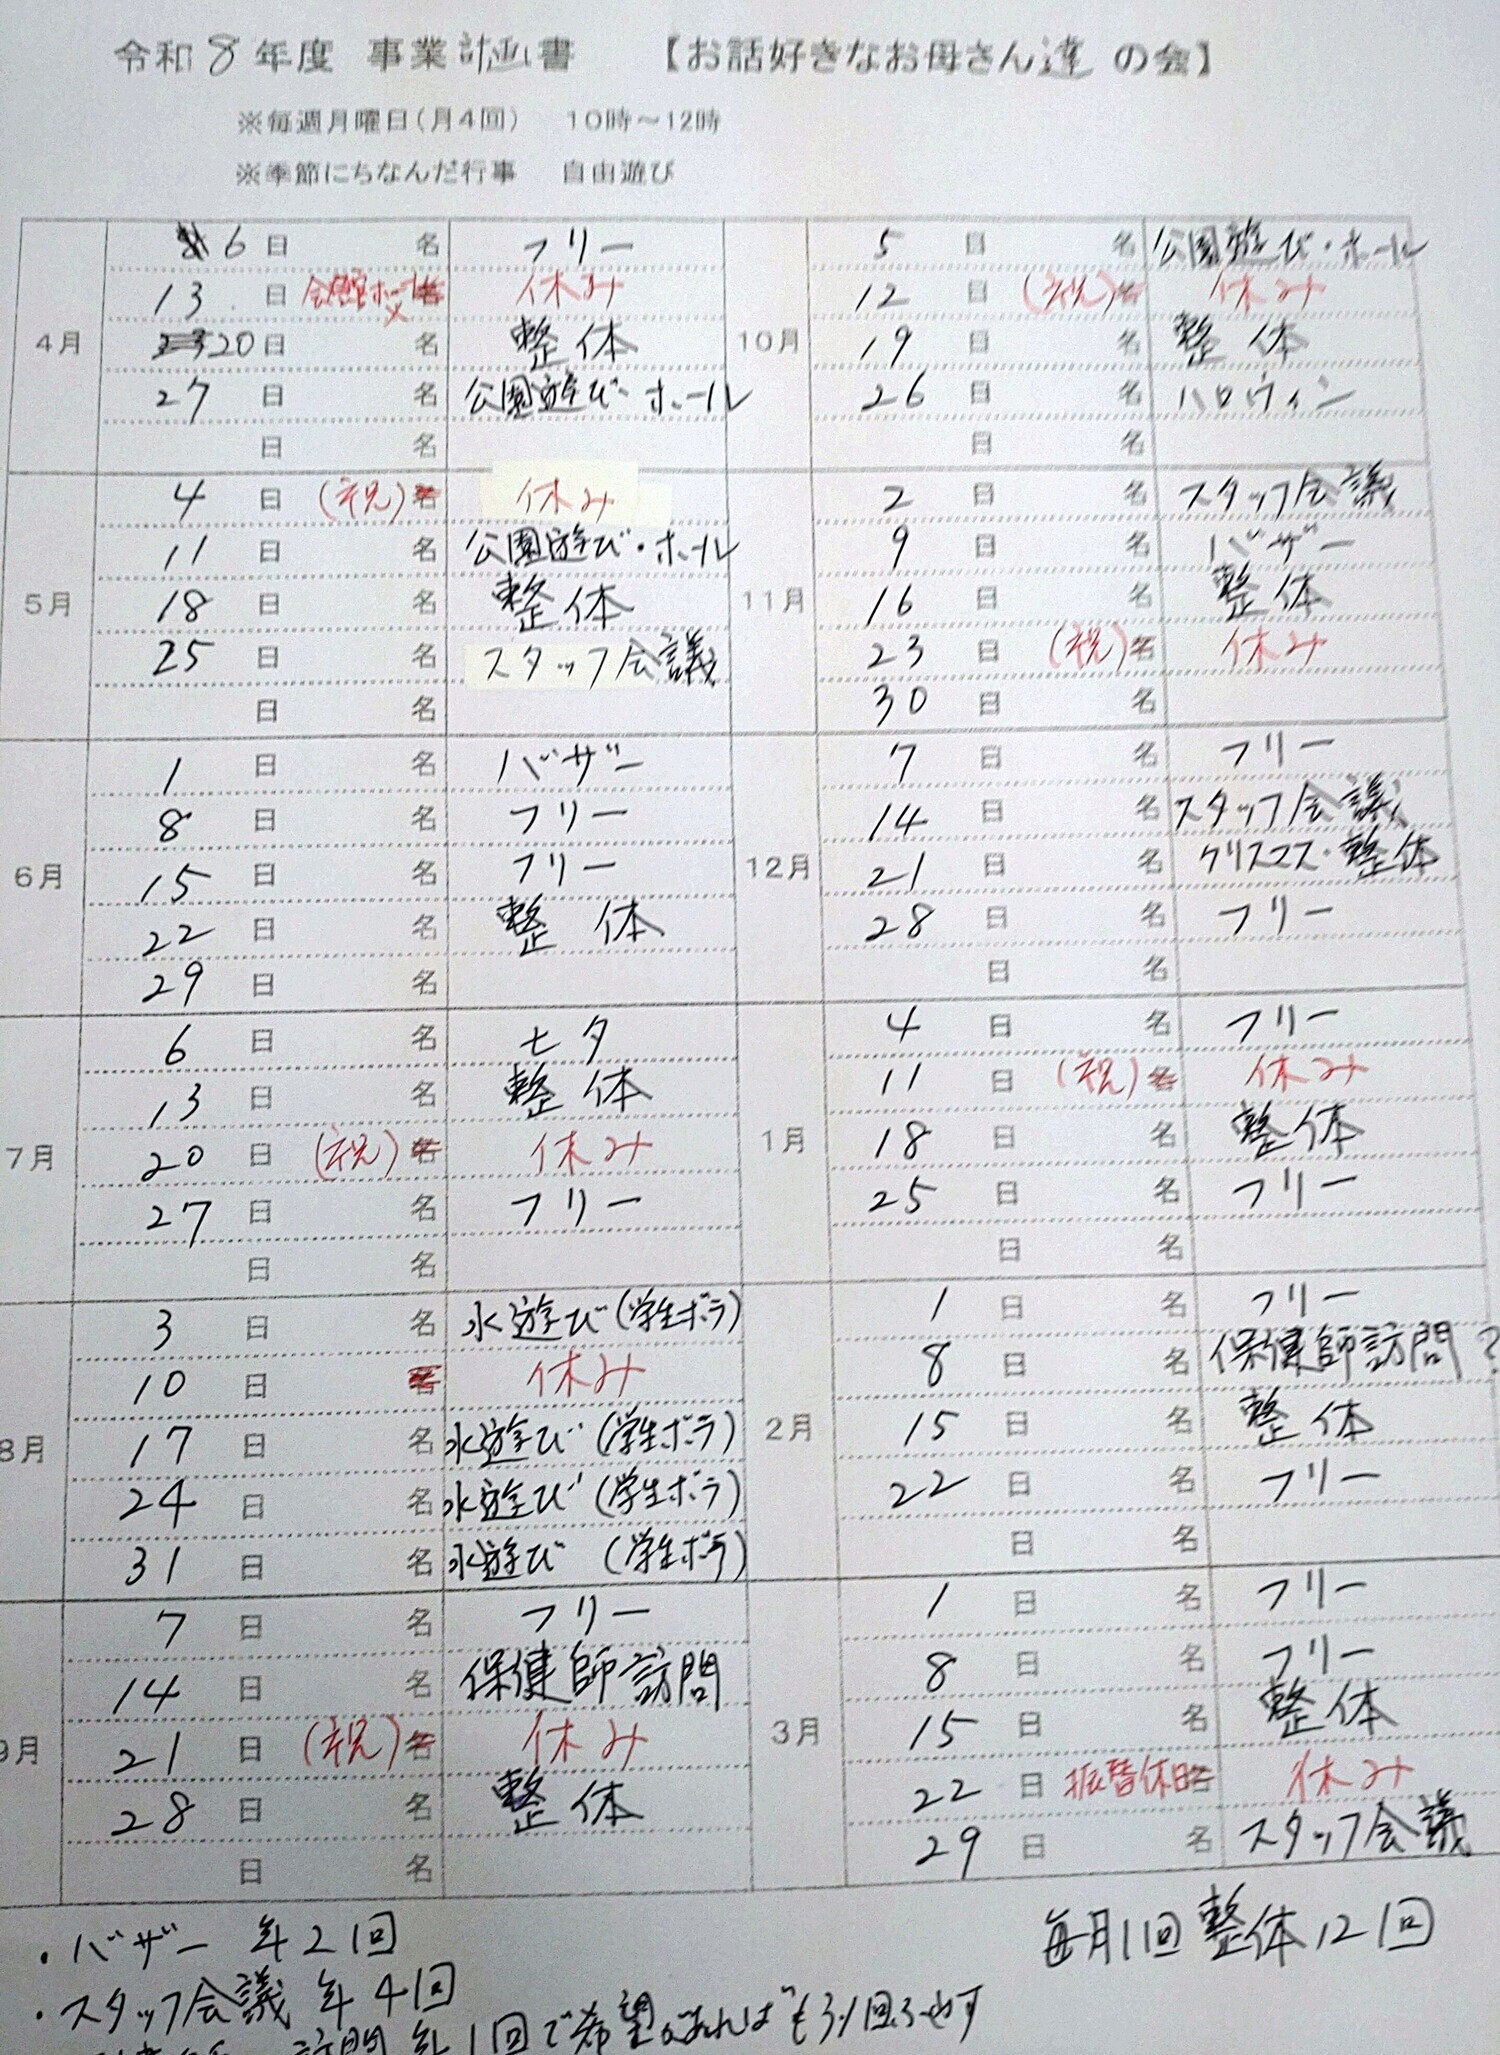 令和8年度 事業計画書 【お話好きなお母さん達の会】
※毎週月曜日(月4回) 10時～12時
※季節にちなんだ行事 自由遊び
4月
6日 名 フリー
13日 会館ホール× 休み
20日 名 整体
27日 名 公園遊び・ホール
日 名
5月
4日 (祝) 休み
11日 名 公園遊び・ホール
18日 名 整体
25日 名 スタッフ会議
日 名
6月
1日 名 バザー
8日 名 フリー
15日 名 フリー
22日 名 整体
29日 名
7月
6日 名 七夕
13日 名 整体
20日 (祝) 休み
27日 名 フリー
日 名
8月
3日 名 水遊び(学生ボラ)
10日 休み
17日 名 水遊び(学生ボラ)
24日 名 水遊び(学生ボラ)
31日 名 水遊び(学生ボラ)
9月
7日 名 フリー
14日 名 保健師訪問
21日 (祝) 休み
28日 名 整体
日 名
10月
5日 名 公園遊び・ホール
12日 (祝) 休み
19日 名 整体
26日 名 ハロウィン
日 名
11月
2日 名 スタッフ会議
9日 名 バザー
16日 名 整体
23日 (祝) 休み
30日 名
12月
7日 名 フリー
14日 名 スタッフ会議
21日 名 クリスマス・整体
28日 名 フリー
日 名
1月
4日 名 フリー
11日 (祝) 休み
18日 名 整体
25日 名 フリー
日 名
2月
1日 名 フリー
8日 名 保健師訪問?
15日 名 整体
22日 名 フリー
日 名
3月
1日 名 フリー
8日 名 フリー
15日 名 整体
22日 振替休日 休み
29日 名 スタッフ会議
毎月1回整体12回
・バザー 年2回
・スタッフ会議 年4回
訪問 年1回で希望があればもう1回ふやす